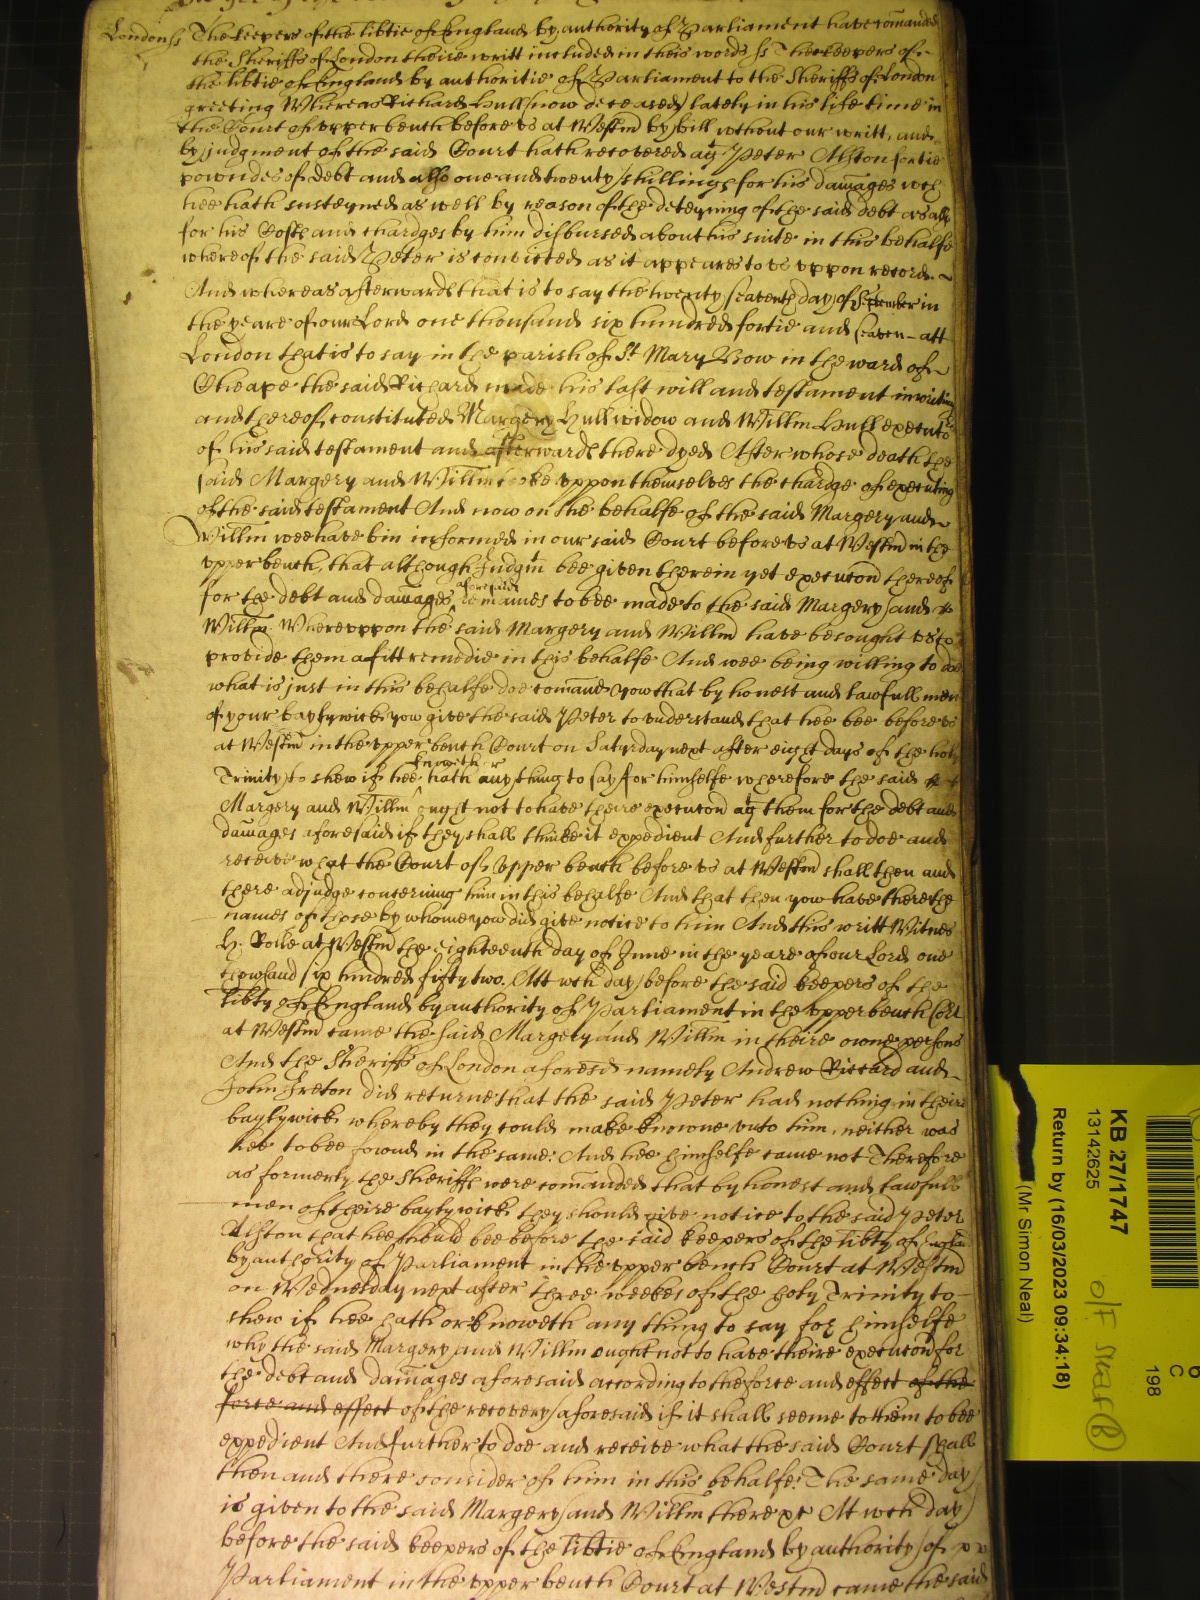 London ss The keepers of the libtie of England by authority of Parliament have comanded
the Sheriffs of London theire writt included in theis words ss The keepers of
the libtie of England by authoritie of Parliament to the Sheriffs of London
greeting Whereas Richard Hull (now deceased) lately in his life time in
the Court of upper bench before us at Westm by bill without our writt, and
by judgment of the said Court hath recovered agt Peter Alston fortie
poundes of debt and also one and twenty shillings for his damages wch
hee hath susteyned as well by reason of the deteyning of the said debt as also
for his Costs and chardges by him disbursed about his suite in this behalfe
whereof the said Peter is convicted as it appeares to us uppon record
And whereas afterwards that is to say the twenty seaventh day of September in
the yeare of our Lord one thousand six hundred fortie and seaven att
London that is to say in the parish of St Mary Bow in the ward of
Cheape the said Richard made his last will and testament in writing
and thereof constituted Margery Hull widow and Willm Hull executors
of his said testament and afterwards there dyed After whose death the
said Margery and Willm tooke uppon themselves the chardge of executing
of the said testament And now on the behalfe of the said Margery and
Willm wee have bin informed in our said Court before us at Westm in the
upper bench, that although Judgmt bee given therein yet execucon thereof
for the debt and damages aforesaid remaines to bee made to the said Margery and
Willm. Whereuppon the said Margery and Willm have besought us to
provide them a fitt remedie in this behalfe And wee being willing to doe
what is just in this behalfe doe comand yow that by honest and lawfull men
of your baylywick yow give the said Peter to understand that hee bee before us
at Westm in the upper bench Court on Saturday next after eight days of the holy
Trinity to shew if hee hath or knoweth any thing to say for himselfe wherefore the said
Margery and Willm ought not to have theire execucon agt them for the debt and
damages aforesaid if they shall thinke it expedient And further to doe and
receive what the Court of Upper bench before us at Westm shall then and
there adjudge concerning him in this behalfe And that then yow have there the
names of those by whome yow did give notice to him And this writt Witnes
H. Rolle at Westm the eighteenth day of June in the yeare of our Lord one
thowsand six hundred fifty two. Att wch day before the said keepers of the
libty of England by authority of Parliament in the upper bench Cort
at Westm came the said Margery and Willm in theire owne persons
And the Sheriffs of London aforesd namely Andrew Riccard and
John Ireton did returne that the said Peter had nothing in theire
baylywick whereby they could make knowne unto him, neither was
hee to bee found in the same: And hee himselfe came not Therefore
as formerly the Sheriffs were comanded that by honest and lawfull
men of theire baylywick they should give notice to the said Peter
Alston that hee should bee before the said keepers of the libty of Engld
by authority of Parliament in the upper bench Court at Westm
on Wednesday next after three weekes of the holy Trinity to
shew if hee hath or knoweth any thing to say for himselfe
why the said Margery and Willm ought not to have theire execucon for
the debt and damages aforesaid according to the force and effect of the
force and effect of the recovery aforesaid if it shall seeme to them to bee
expedient And further to doe and receive what the said Court shall
then and there consider of him in this behalfe: The same day
is given to the said Margery and Willm there &c At wch day
before the said keepers of the libtie of England by authority of
Parliament in the upper bench Court at Westm came the said
KB 27/1747
13142625
Return by (16/03/2023 09:34:18)
(Mr Simon Neal)
C
198
O/F